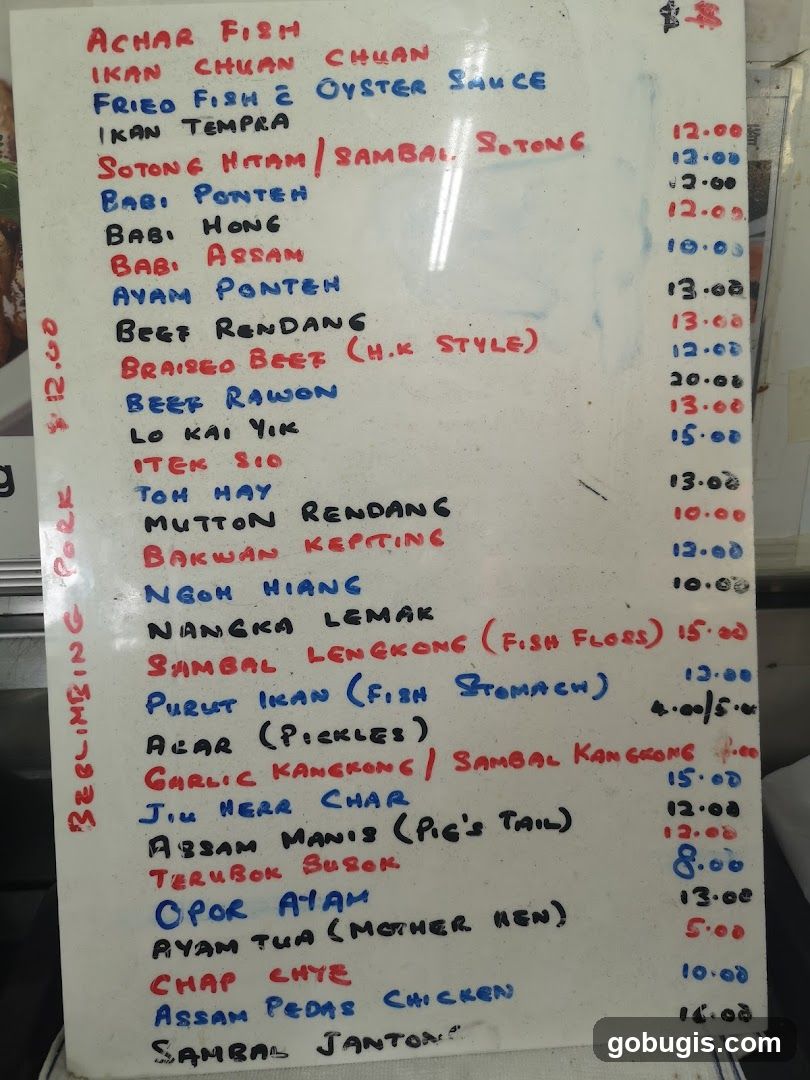 $ $
ACHAR FISH
IKAN CHUAN CHUAN
FRIED FISH C̄ OYSTER SAUCE
IKAN TEMPRA
SOTONG HITAM / SAMBAL SOTONG 12.00
BABI PONTEH 12.00
BABI HONG 12.00
BABI ASSAM 12.00
AYAM PONTEH 10.00
BEEF RENDANG 13.00
BRAISED BEEF (H.K STYLE) 13.00
BEEF RAWON 12.00
LO KAI YIK 20.00
ITEK SIO 13.00
TOH HAY 15.00
MUTTON RENDANG 13.00
BAKWAN KEPITING 10.00
NGOH HIANG 12.00
NANGKA LEMAK 10.00
SAMBAL LENGKONG (FISH FLOSS) 15.00
PURUT IKAN (FISH STOMACH) 12.00
ACAR (PICKLES) 4.00/5.00
GARLIC KANGKONG / SAMBAL KANGKONG
JIU HERR CHAR 15.00
ASSAM MANIS (PIG'S TAIL) 12.00
TERUBOK BUSOK 12.00
OPOR AYAM 8.00
AYAM TUA (MOTHER HEN) 13.00
CHAP CHYE 5.00
ASSAM PEDAS CHICKEN 10.00
SAMBAL JANTONG
BEBLIMBING PORK $12.00
g
gobugis.com